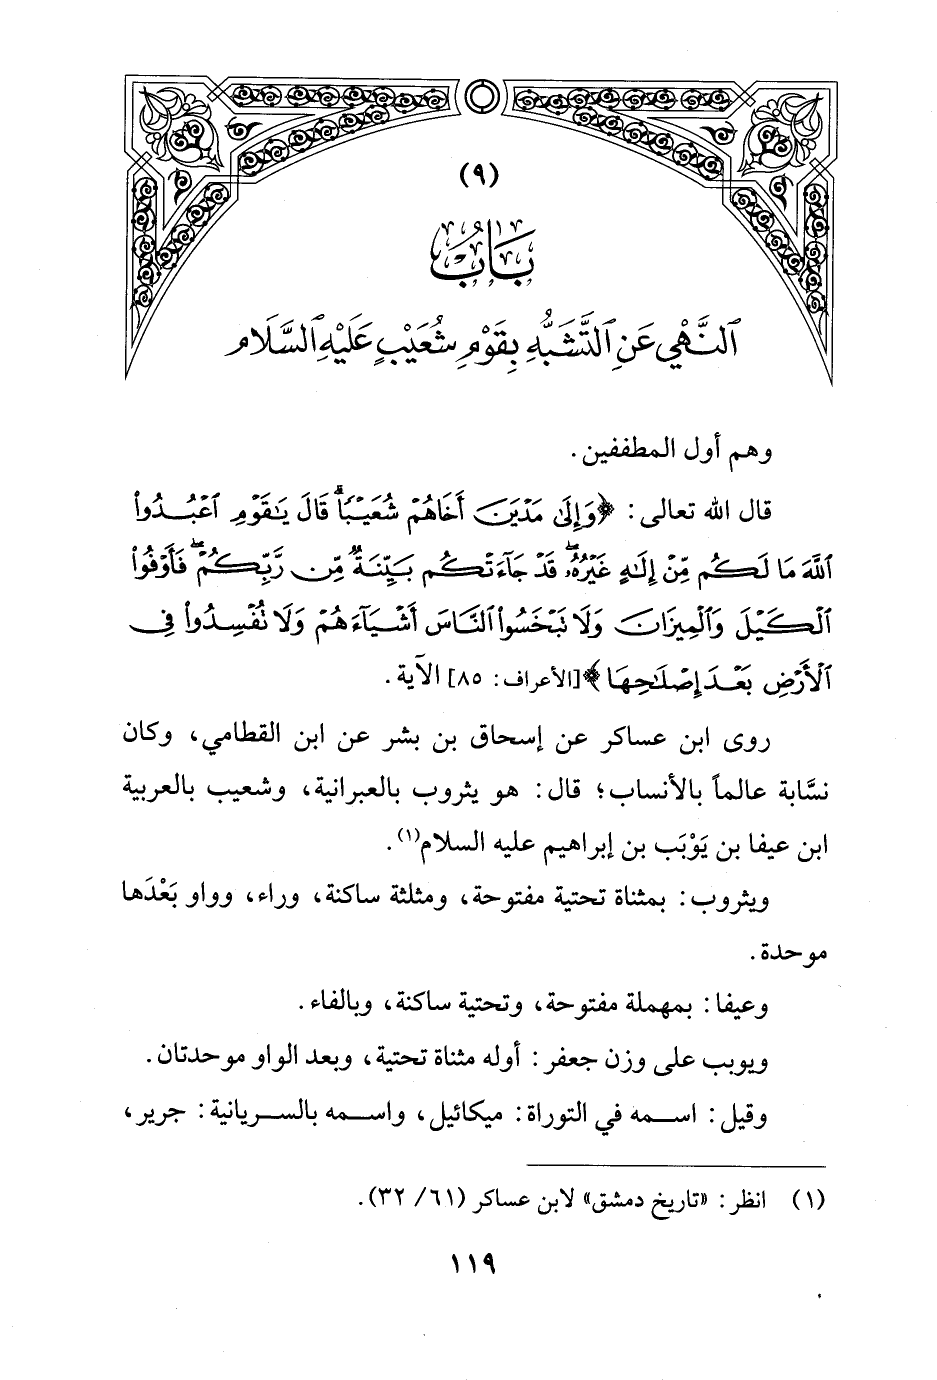 (٩)
بَابُ
اَلنَّهْيِ عَنِ اَلتَّشَبُّهِ بِقَوْمِ شُعَيْبٍ عَلَيْهِ السَّلَام
وهم أول المطففين .
قال الله تعالى : ﴿وَإِلَىٰ مَدْيَنَ أَخَاهُمْ شُعَيْبًا ۗ قَالَ يَٰقَوْمِ ٱعْبُدُوا۟
ٱللَّهَ مَا لَكُم مِّنْ إِلَٰهٍ غَيْرُهُۥ ۖ قَدْ جَآءَتْكُم بَيِّنَةٌ مِّن رَّبِّكُمْ ۖ فَأَوْفُوا۟
ٱلْكَيْلَ وَٱلْمِيزَانَ وَلَا تَبْخَسُوا۟ ٱلنَّاسَ أَشْيَآءَهُمْ وَلَا تُفْسِدُوا۟ فِى
ٱلْأَرْضِ بَعْدَ إِصْلَٰحِهَا﴾ [الأعراف: ٨٥] الآية .
روى ابن عساكر عن إسحاق بن بشر عن ابن القطامي، وكان
نسَّابة عالماً بالأنساب؛ قال: هو يثروب بالعبرانية، وشعيب بالعربية
ابن عيفا بن يَوْبَب بن إبراهيم عليه السلام(١).
ويثروب: بمثناة تحتية مفتوحة، ومثلثة ساكنة، وراء، وواو بَعْدَها
موحدة.
وعيفا: بمهملة مفتوحة، وتحتية ساكنة، وبالفاء.
ويوبب على وزن جعفر: أوله مثناة تحتية، وبعد الواو موحدتان.
وقيل: اسمه في التوراة: ميكائيل، واسمه بالسريانية: جرير،
(١) انظر: «تاريخ دمشق» لابن عساكر (٦١/ ٣٢).
١١٩